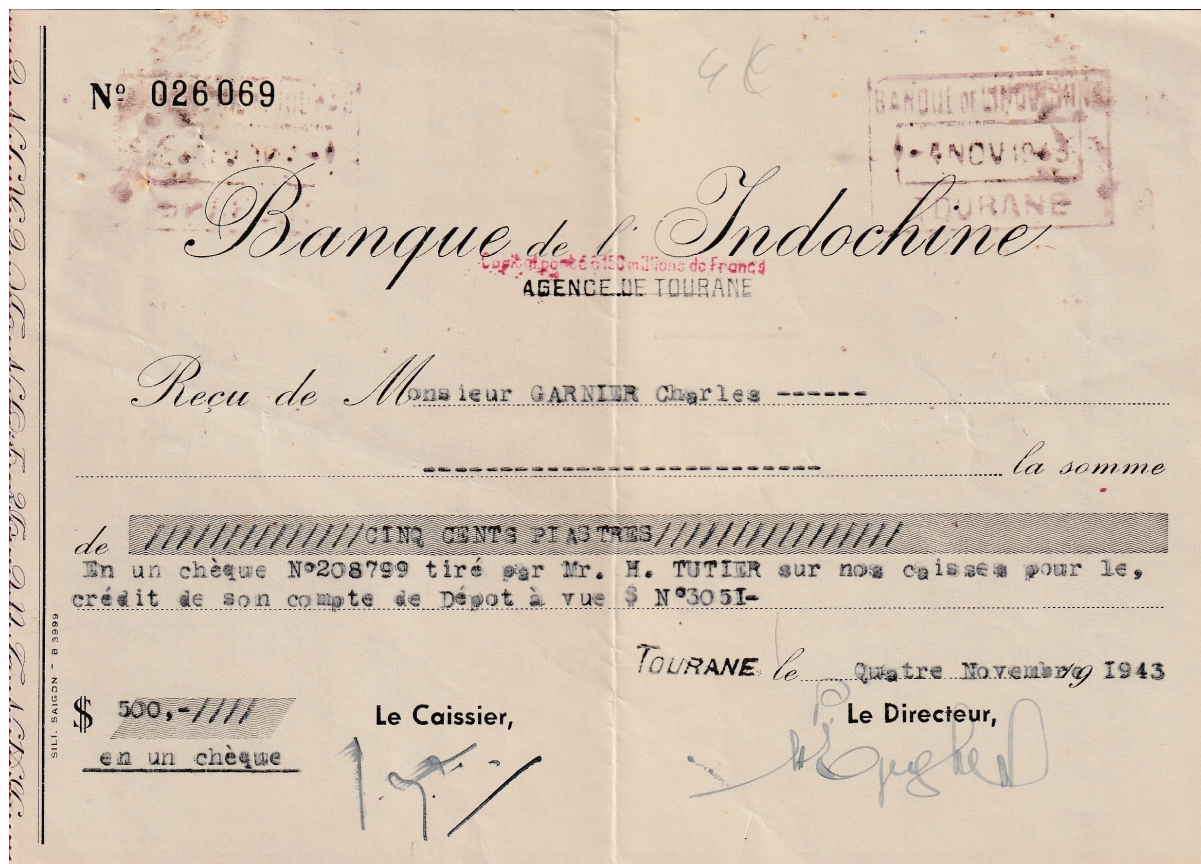 4 €
Nº 026069
BANQUE DE L'INDOCHINE
- 4 NOV 1943
TOURANE
Banque de l'Indochine
Capital porté à 150 millions de Francs
AGENCE DE TOURANE
Reçu de Monsieur GARNIER Charles ------
--------------------------- la somme
de //////////////CINQ CENTS PIASTRES////////////////
En un chèque N°208799 tiré par Mr. H. TUTIER sur nos caisses pour le,
crédit de son compte de Dépot à vue $ N°305I-
TOURANE le Quatre Novembre 19 I943
$ 500,-////
Le Caissier,
Le Directeur,
en un chèque
SILI. SAIGON - B 3999